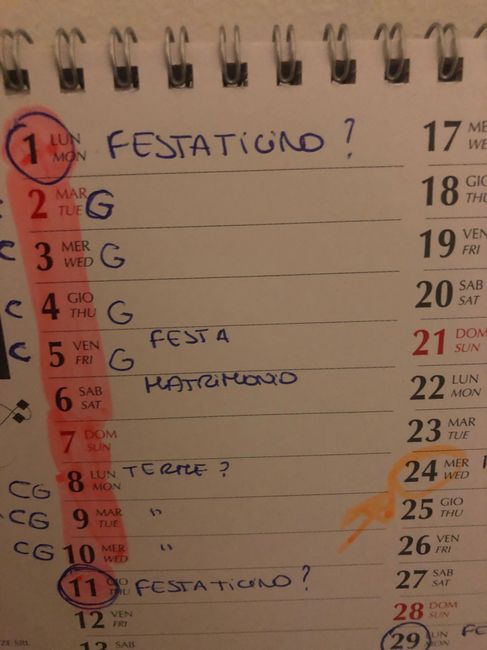 1 LUN MON FESTATICINO ?
2 MAR TUE G
C 3 MER WED G
C 4 GIO THU G
C 5 VEN FRI G FESTA
6 SAB SAT MATRIMONIO
7 DOM SUN
CG 8 LUN MON TERME ?
CG 9 MAR TUE "
CG 10 MER WED "
11 GIO THU FESTATICINO ?
12 VEN FRI
13 SAB
17 ME WE
18 GIO THU
19 VEN FRI
20 SAB SAT
21 DOM SUN
22 LUN MON
23 MAR TUE
24 MER WED
25 GIO THU
26 VEN FRI
27 SAB SAT
28 DOM SUN
29 LUN MON FE
ZE SRL